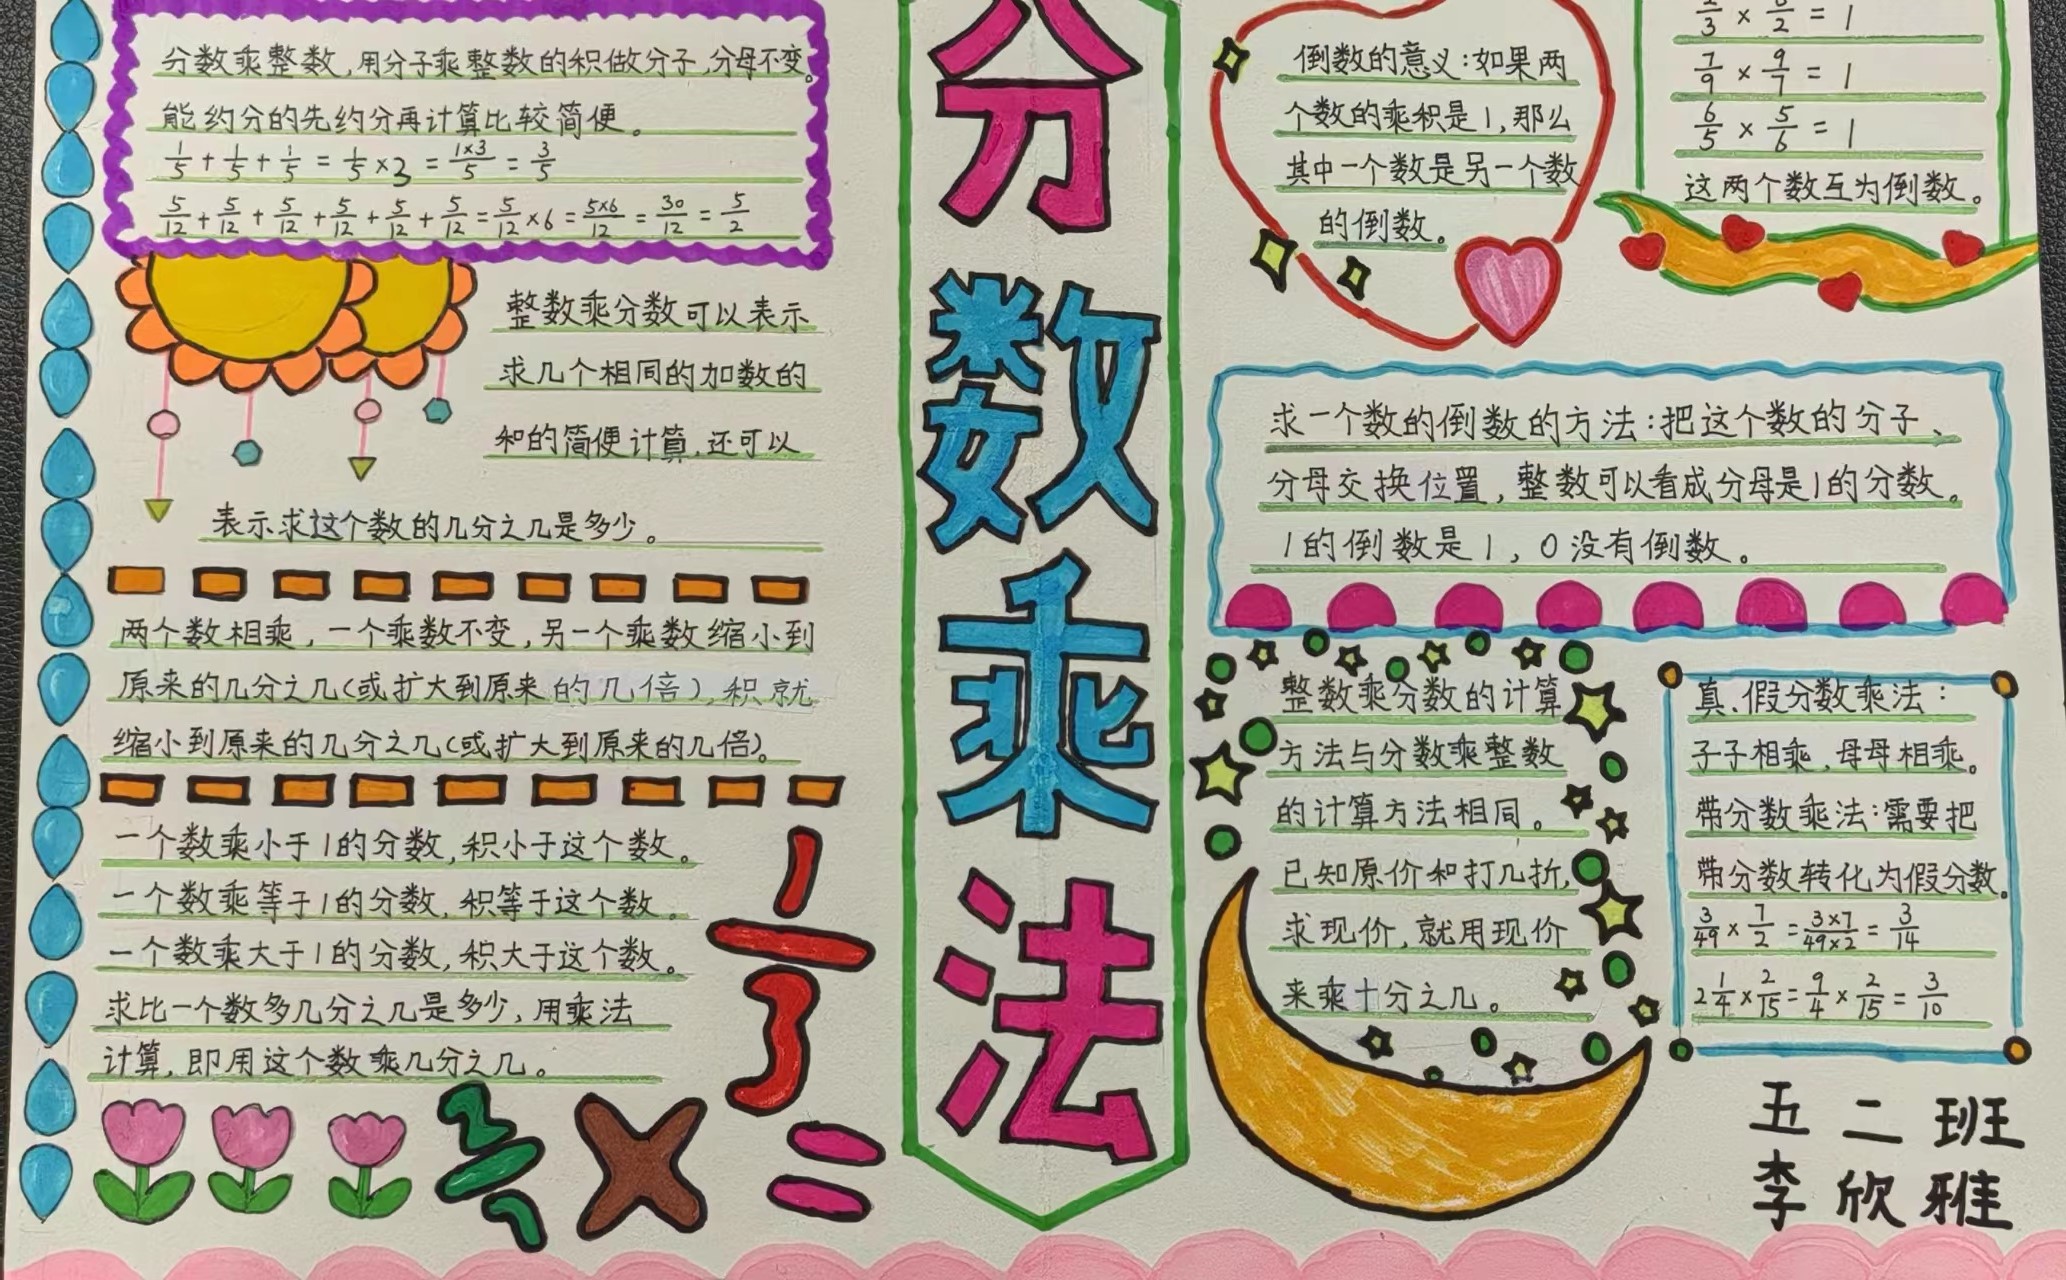 分数乘整数,用分子乘整数的积做分子,分母不变。
能约分的先约分再计算比较简便。
1/5 + 1/5 + 1/5 = 1/5 × 3 = 1×3/5 = 3/5
5/12 + 5/12 + 5/12 + 5/12 + 5/12 + 5/12 = 5/12 × 6 = 5×6/12 = 30/12 = 5/2
整数乘分数可以表示
求几个相同的加数的
和的简便计算,还可以
表示求这个数的几分之几是多少。
两个数相乘,一个乘数不变,另一个乘数缩小到
原来的几分之几(或扩大到原来的几倍),积就
缩小到原来的几分之几(或扩大到原来的几倍)。
一个数乘小于1的分数,积小于这个数。
一个数乘等于1的分数,积等于这个数。
一个数乘大于1的分数,积大于这个数。
求比一个数多几分之几是多少,用乘法
计算,即用这个数乘几分之几。
1/3
2/5
×
=
分
数
乘
法
倒数的意义:如果两
个数的乘积是1,那么
其中一个数是另一个数
的倒数。
7/9 × 9/7 = 1
6/5 × 5/6 = 1
这两个数互为倒数。
求一个数的倒数的方法:把这个数的分子、
分母交换位置,整数可以看成分母是1的分数。
1的倒数是1,0没有倒数。
整数乘分数的计算
方法与分数乘整数
的计算方法相同。
已知原价和打几折,
求现价,就用现价
来乘十分之几。
真、假分数乘法:
子子相乘,母母相乘。
带分数乘法:需要把
带分数转化为假分数。
3/49 × 7/2 = 3×7/49×2 = 3/14
2 1/4 × 2/15 = 9/4 × 2/15 = 3/10
五二班
李欣雅